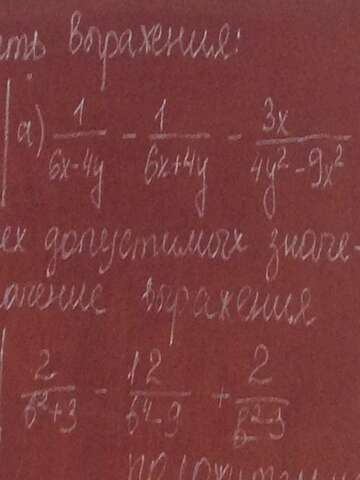 ть выражения:
а) 1/(6x-4y) - 1/(6x+4y) - 3x/(4y²-9x²)
ех допустимых значе-
ачение выражения
2/(b²+3) - 12/(b⁴-9) + 2/(b²-3)